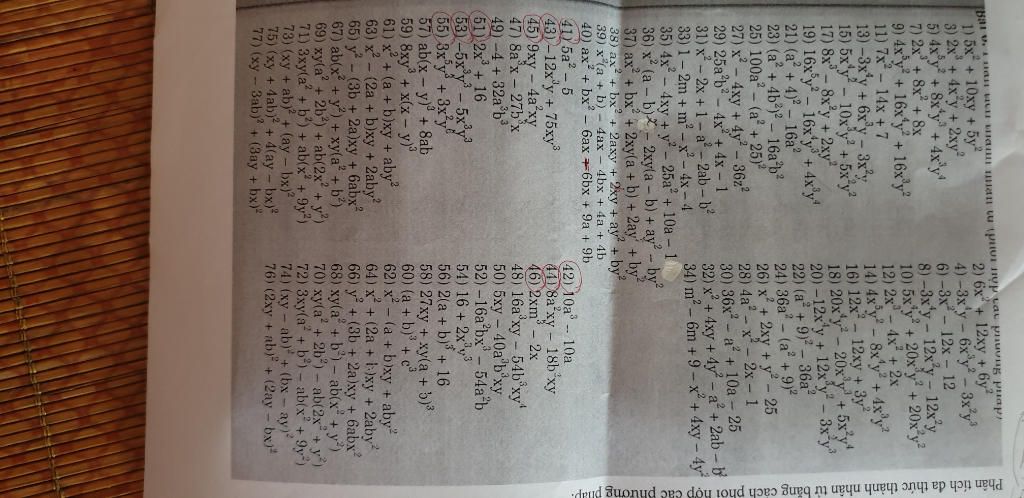 Phân tích đa thức thành nhân tử bằng cách phối hợp các phương pháp.
thành nhân tử (phối hợp các phương pháp)
1) 5x² + 10xy + 5y²
2) 6x² + 12xy + 6y²
3) 2x³ + 4x²y + 2xy²
4) −3x⁴y − 6x³y² − 3x²y³
5) 4x⁵y² + 8x⁴y³ + 4x³y⁴
6) −3x² − 12x − 12
7) 2x³ + 8x² + 8x
8) −3x⁴y − 12x³y − 12x²y
9) 4x⁵y² + 16x⁴y² + 16x³y²
10) 5x⁴y² + 20x³y² + 20x²y²
11) 7x² − 14x + 7
12) 2x³ − 4x² + 2x
13) −3x⁴y + 6x³y − 3x²y
14) 4x⁵y² − 8x⁴y² + 4x³y²
15) 5x⁴y² − 10x³y² + 5x²y²
16) 12x² − 12xy + 3y²
17) 8x³ − 8x²y + 2xy²
18) 20x⁴y² − 20x³y³ + 5x²y⁴
19) 16x⁵y² − 16x⁴y³ + 4x³y⁴
20) −12x³y + 12x²y² − 3xy³
21) (a² + 4)² − 16a²
22) (a² + 9)² − 36a²
23) (a² + 4b²)² − 16a²b²
24) 36a² − (a² + 9)²
25) 100a² − (a² + 25)²
26) x² + 2xy + y² − 25
27) x² − 4xy + 4y² − 36z²
28) 4a² − x² − 2x − 1
29) 25a²b² − 4x² + 4x − 1
30) 36x² − a² + 10a − 25
31) x² − 2x + 1 − a² − 2ab − b²
32) x² + 4xy + 4y² − a² + 2ab − b²
33) 1 − 2m + m² − x² − 4x − 4
34) m² − 6m + 9 − x² + 4xy − 4y²
35) 4x² − 4xy + y² − 25a² + 10a − 1
36) x²(a − b) − 2xy(a − b) + ay² − by²
37) ax² + bx² + 2xy(a + b) + ay² + by²
38) ax² + bx² + 2axy + 2xy + ay² + by²
39) x²(a + b) − 4ax − 4bx + 4a + 4b
40) ax² + bx² − 6ax − 6bx + 9a + 9b
41) 5a² − 5
42) 10a³ − 10a
43) −12x³y + 75xy³
44) 8a²xy − 18b²xy
45) 9xy − 4a²xy
46) 2xm² − 2x
47) 8a³x − 27b³x
48) 16a³xy − 54b³xy⁴
49) −4 + 32a³b³
50) 5xy − 40a³b³xy
51) 2x³ + 16
52) −16a²bx³ − 54a²b
53) −5x³y³ − 5x³y³
54) 16 + 2x³y³
55) 3x⁵y³ + 3x²y⁶
56) 2(a + b)³ + 16
57) ab(x − y)³ + 8ab
58) 27xy + xy(a + b)³
59) 8xy³ + x(x − y)³
60) (a + b)³ + c³
61) x² + (a + b)xy + aby²
62) x² − (a + b)xy + aby²
63) x² − (2a + b)xy + 2aby²
64) x² + (2a + b)xy + 2aby²
65) y² − (3b + 2a)xy + 6abx²
66) y² + (3b + 2a)xy + 6abx²
67) ab(x² + y²) + xy(a² + b²)
68) xy(a² + b²) − ab(x² + y²)
69) xy(a² + 2b²) + ab(2x² + y²)
70) xy(a² − 2b²) − ab(2x² + y²)
71) 3xy(a² + b²) + ab(x² + 9y²)
72) 3xy(a² + b²) − ab(x² + 9y²)
73) (xy + ab)² − (ay − bx)²
74) (xy − ab)² + (bx − ay)²
75) (xy + 4ab)² + 4(ay − bx)²
76) (2xy + ab)² + (2ay − bx)²
77) (xy − 3ab)² + (3ay + bx)²